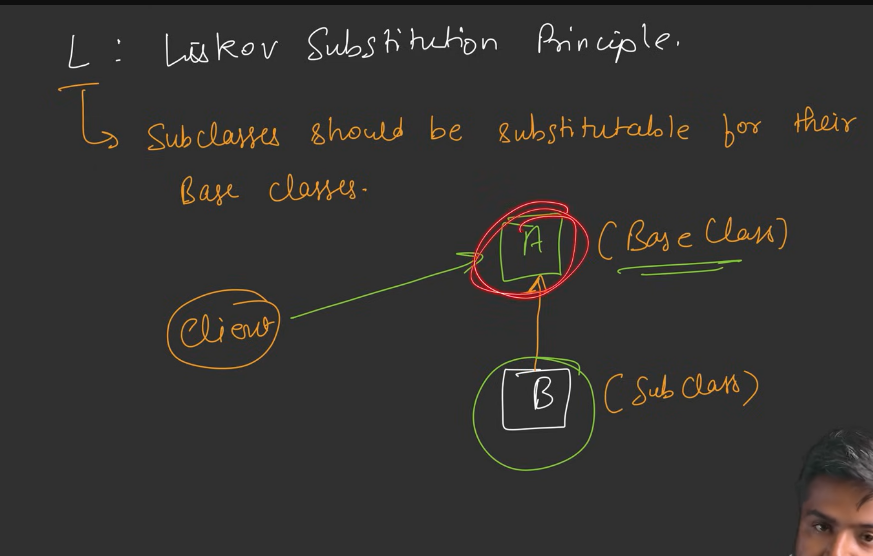 L : Liskov Substitution Principle.
Subclasses should be substitutable for their
Base classes.
A (Base Class)
Client
B (Sub Class)